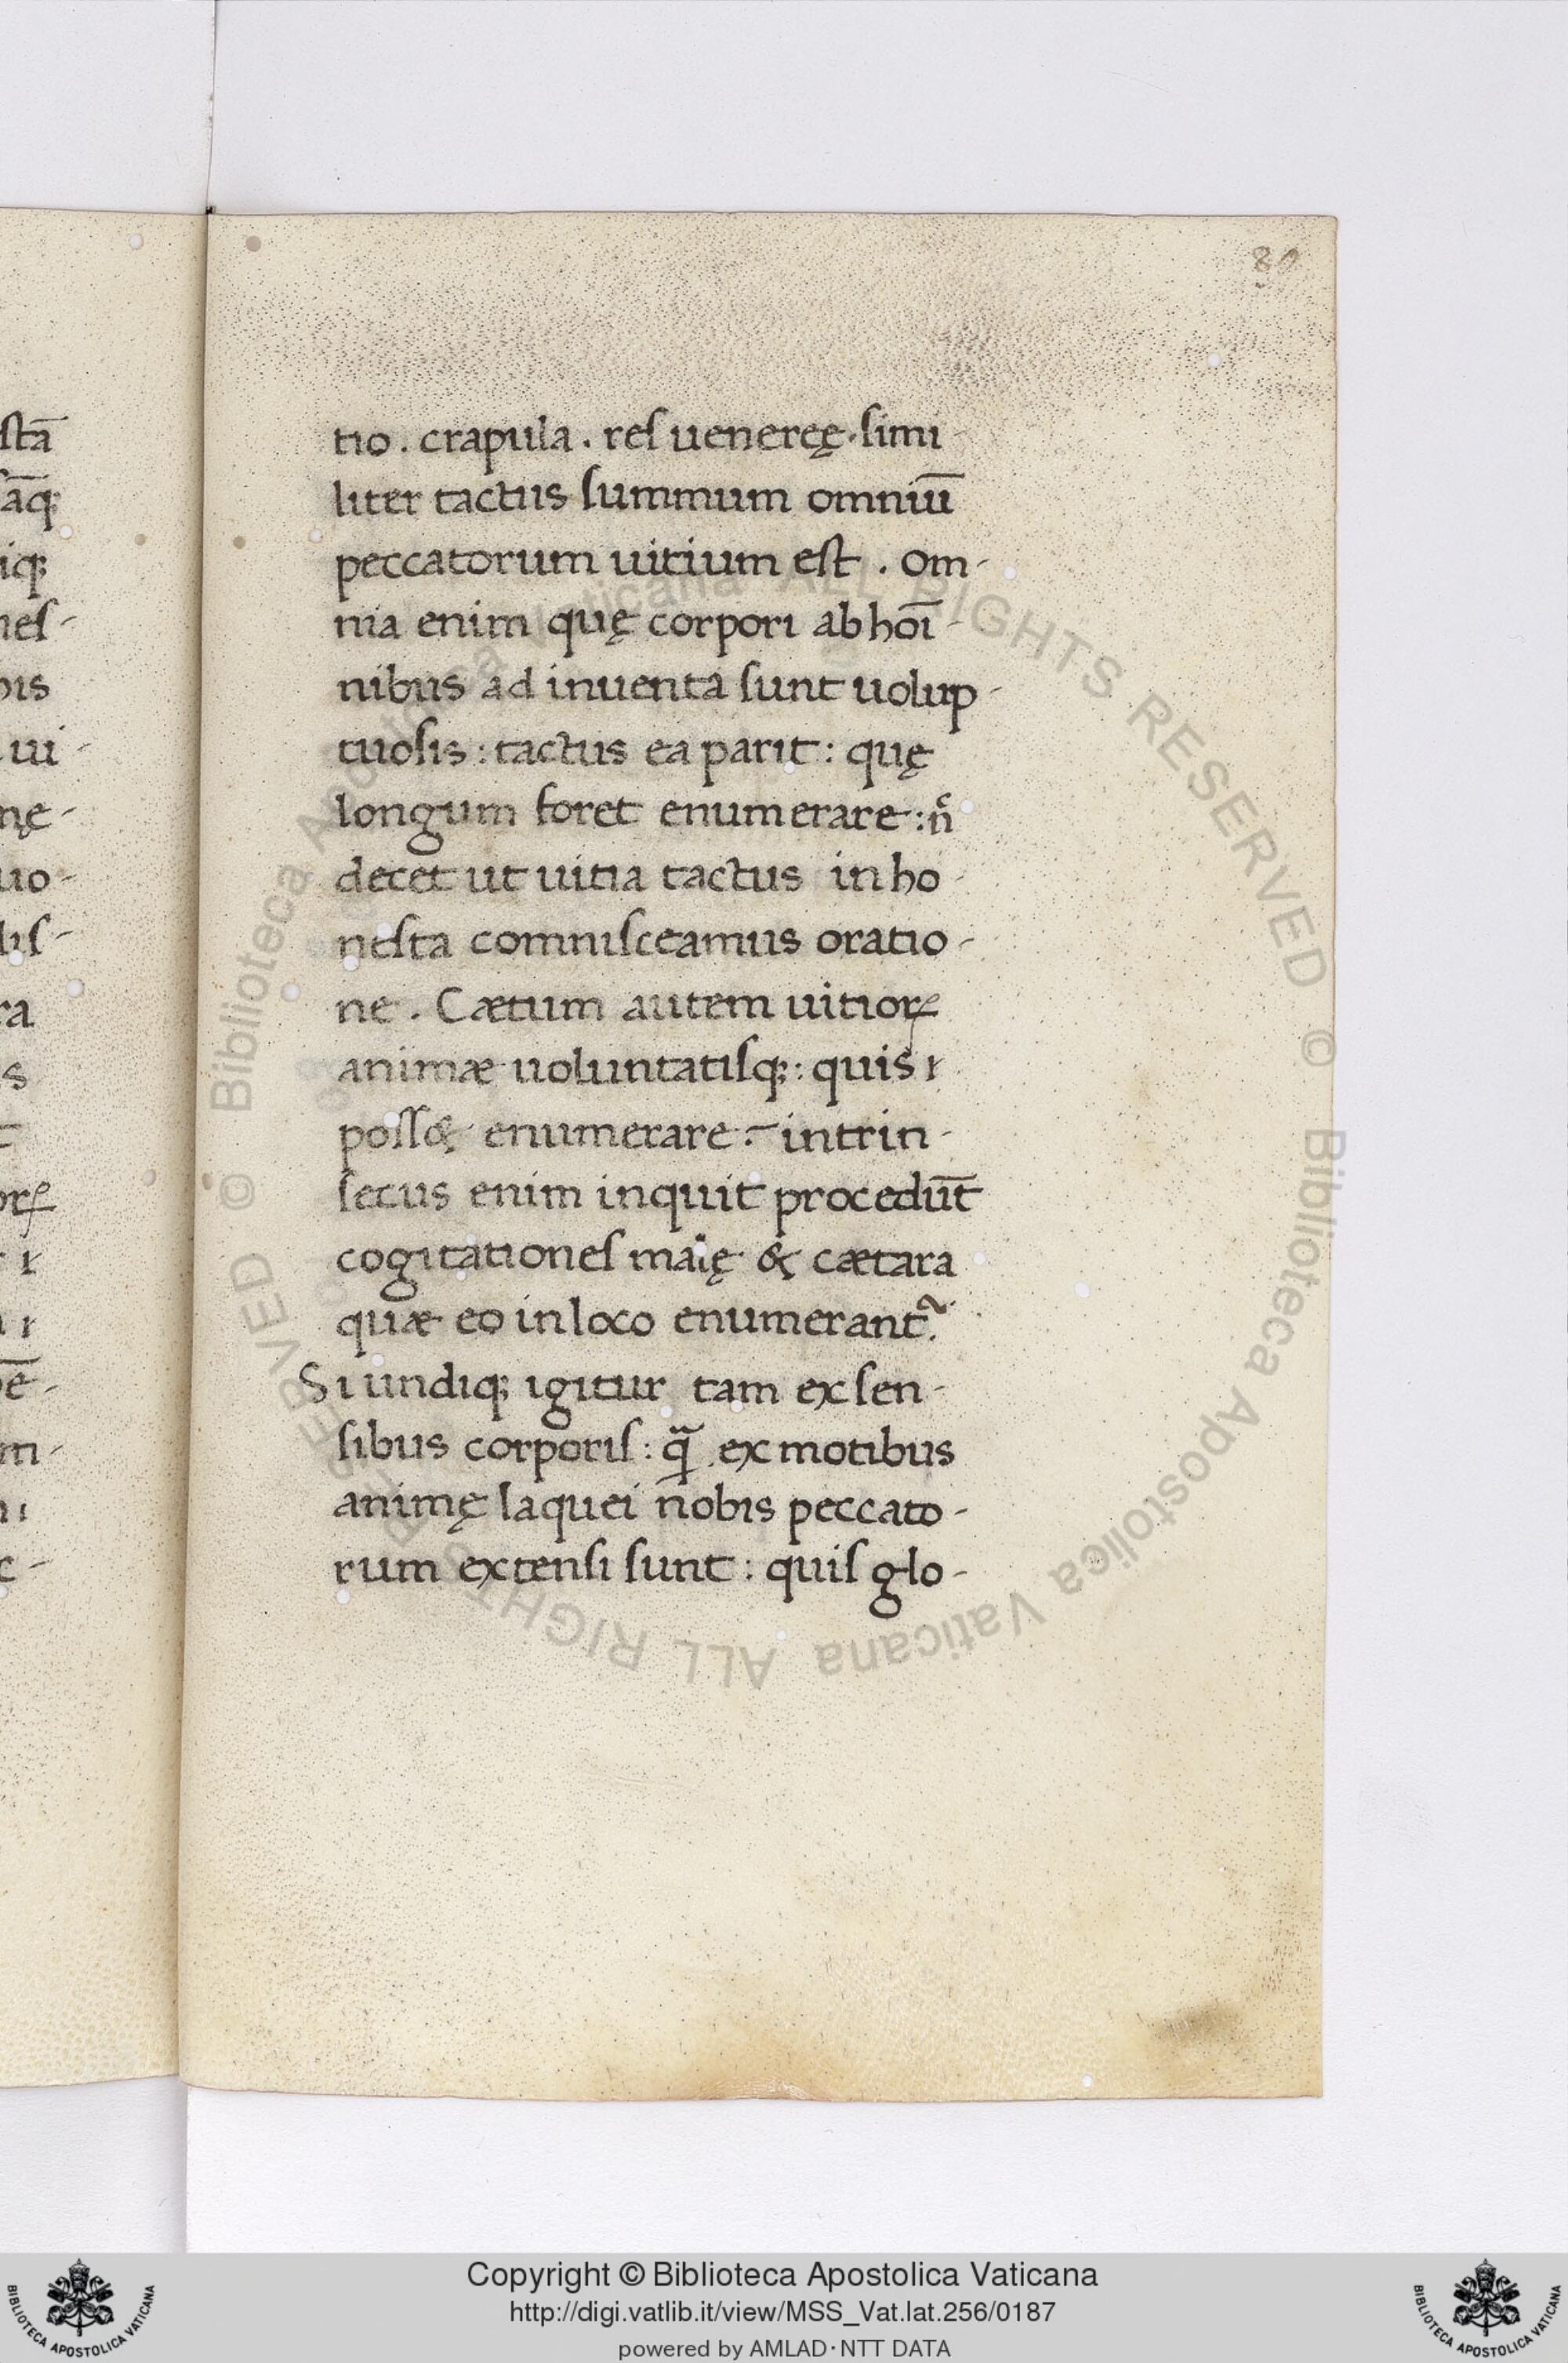 80
tio . crapula . reſ uenereę . ſimi-
liter tactus ſummum omniū
peccatorum uitium eſt . om-
nia enim quę corpori ab hoī-
nibus ad inuenta ſunt uolup-
tuoſis : tactus ea parit : quę
longum foret enumerare : n̄
decet ut uitia tactus in ho-
neſta comniſceamus oratio-
ne . Cætum autem uitioꝝ
animæ uoluntatiſq; : quis
poſſ& enumerare : intrin-
ſecus enim inquit procedūt
cogitationeſ maļę & cætara
quæ eo in loco enumerant᷑.
Si undiq; igitur tam ex ſen-
ſibus corporiſ : qᷓ ex motibus
animę laquei nobis peccato-
rum extenſi ſunt : quiſ glo-
ſtā
āq;
iq;
neſ-
bis
ui-
nę-
uo-
liſ-
ra
s
oꝝ
ē-
m-
c-
© Biblioteca Apostolica Vaticana ALL RIGHTS RESERVED © Biblioteca Apostolica Vaticana ALL RIGHTS RESERVED
Copyright © Biblioteca Apostolica Vaticana
http://digi.vatlib.it/view/MSS_Vat.lat.256/0187
powered by AMLAD·NTT DATA
BIBLIOTECA APOSTOLICA VATICANA
BIBLIOTECA APOSTOLICA VATICANA